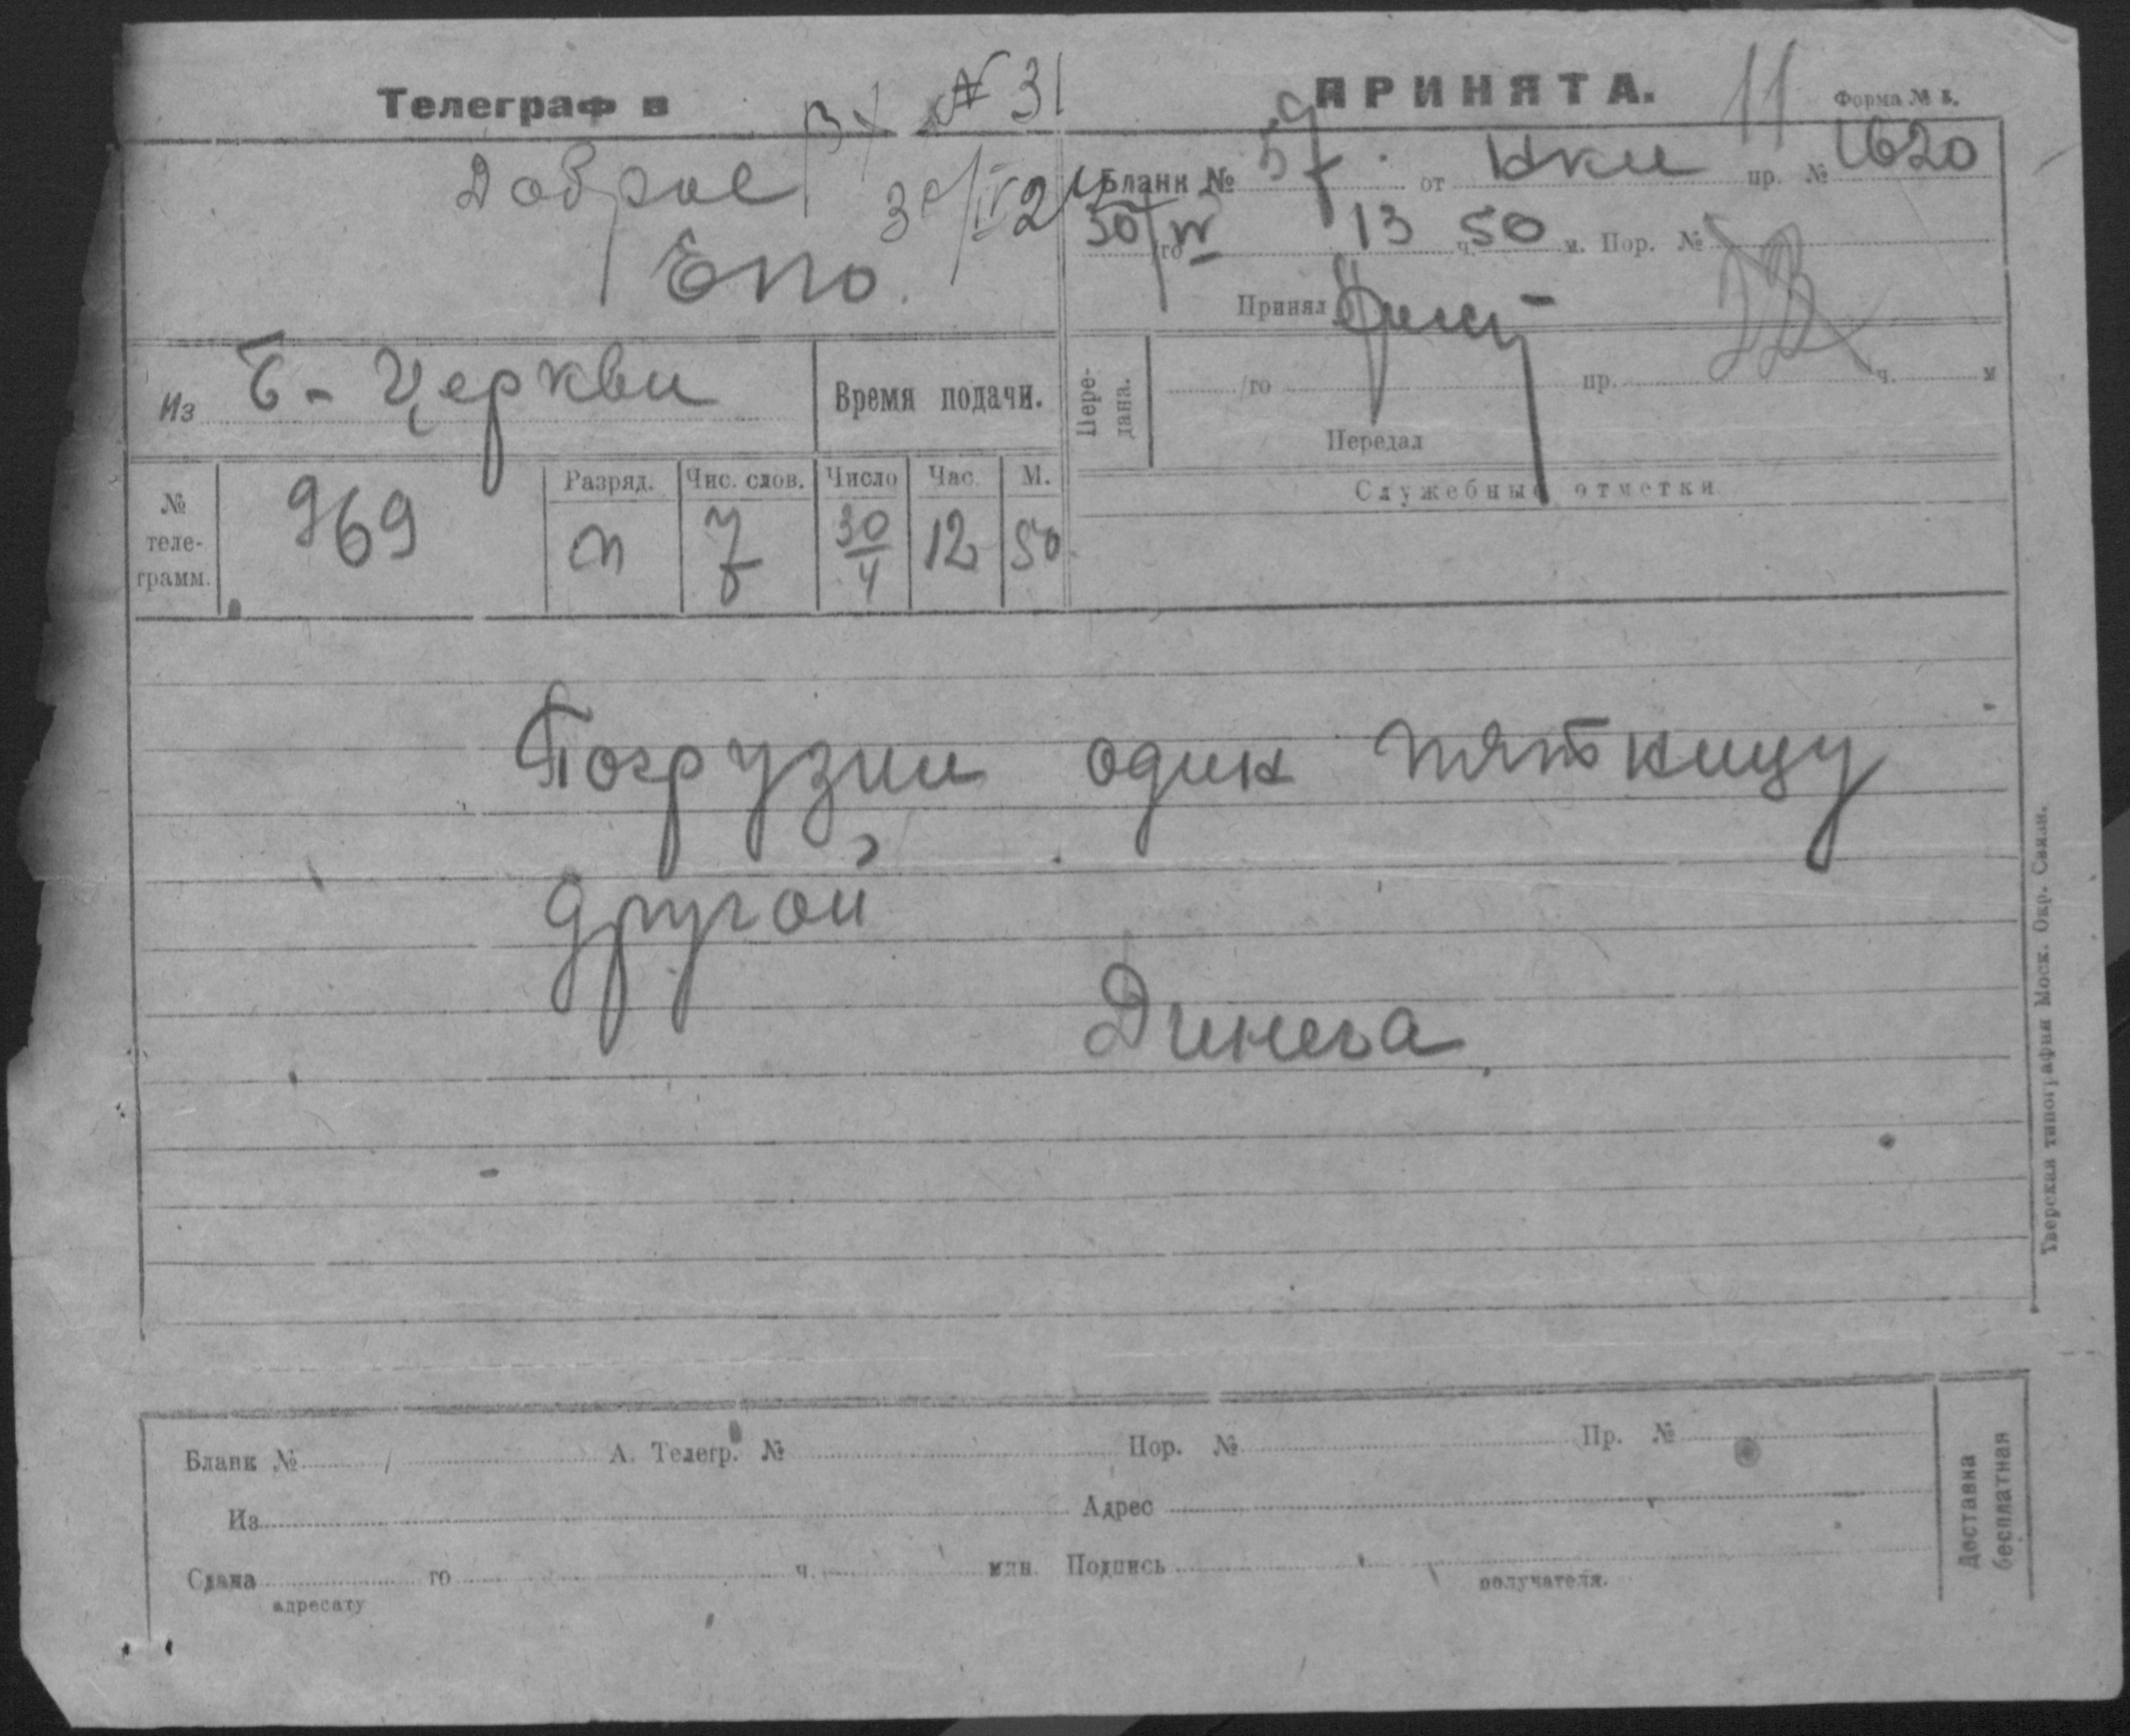 Телеграф в
Вх № 31
30/IV 24
Доброе
Епо.
Из Б-Церкви
Время подачи.
№ теле-грамм. 969
Разряд. п
Чис. слов. 7
Число 30/4
Час. 12
М. 50
ПРИНЯТА.
11
Форма № 5.
Бланк № 59 от Нки пр. № 1620
30/го IV 13 ч. 50 м. Пор. №
Принял
Пере-дана.
/го пр. ч. м
Передал
Служебные отметки
Погрузили один пятницу
другой
Динега
Тверская типография Моск. Окр. Связи.
Бланк № А. Телегр. № Пор. № Пр. №
Из Адрес
Сдана го ч. мин. Подпись
адресату получателя.
Доставка
бесплатная